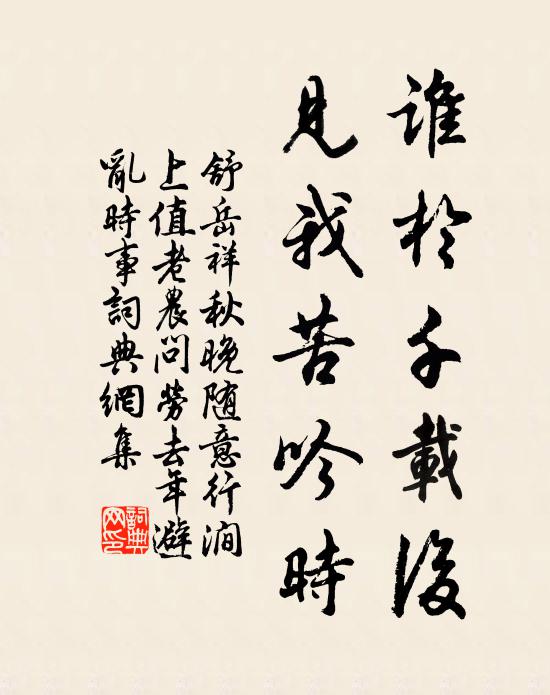 誰於千載後
見我苦吟時
舒岳祥秋晚随意行澗
上值老農問勞去年避
亂時事詞典網集
詞典
网印